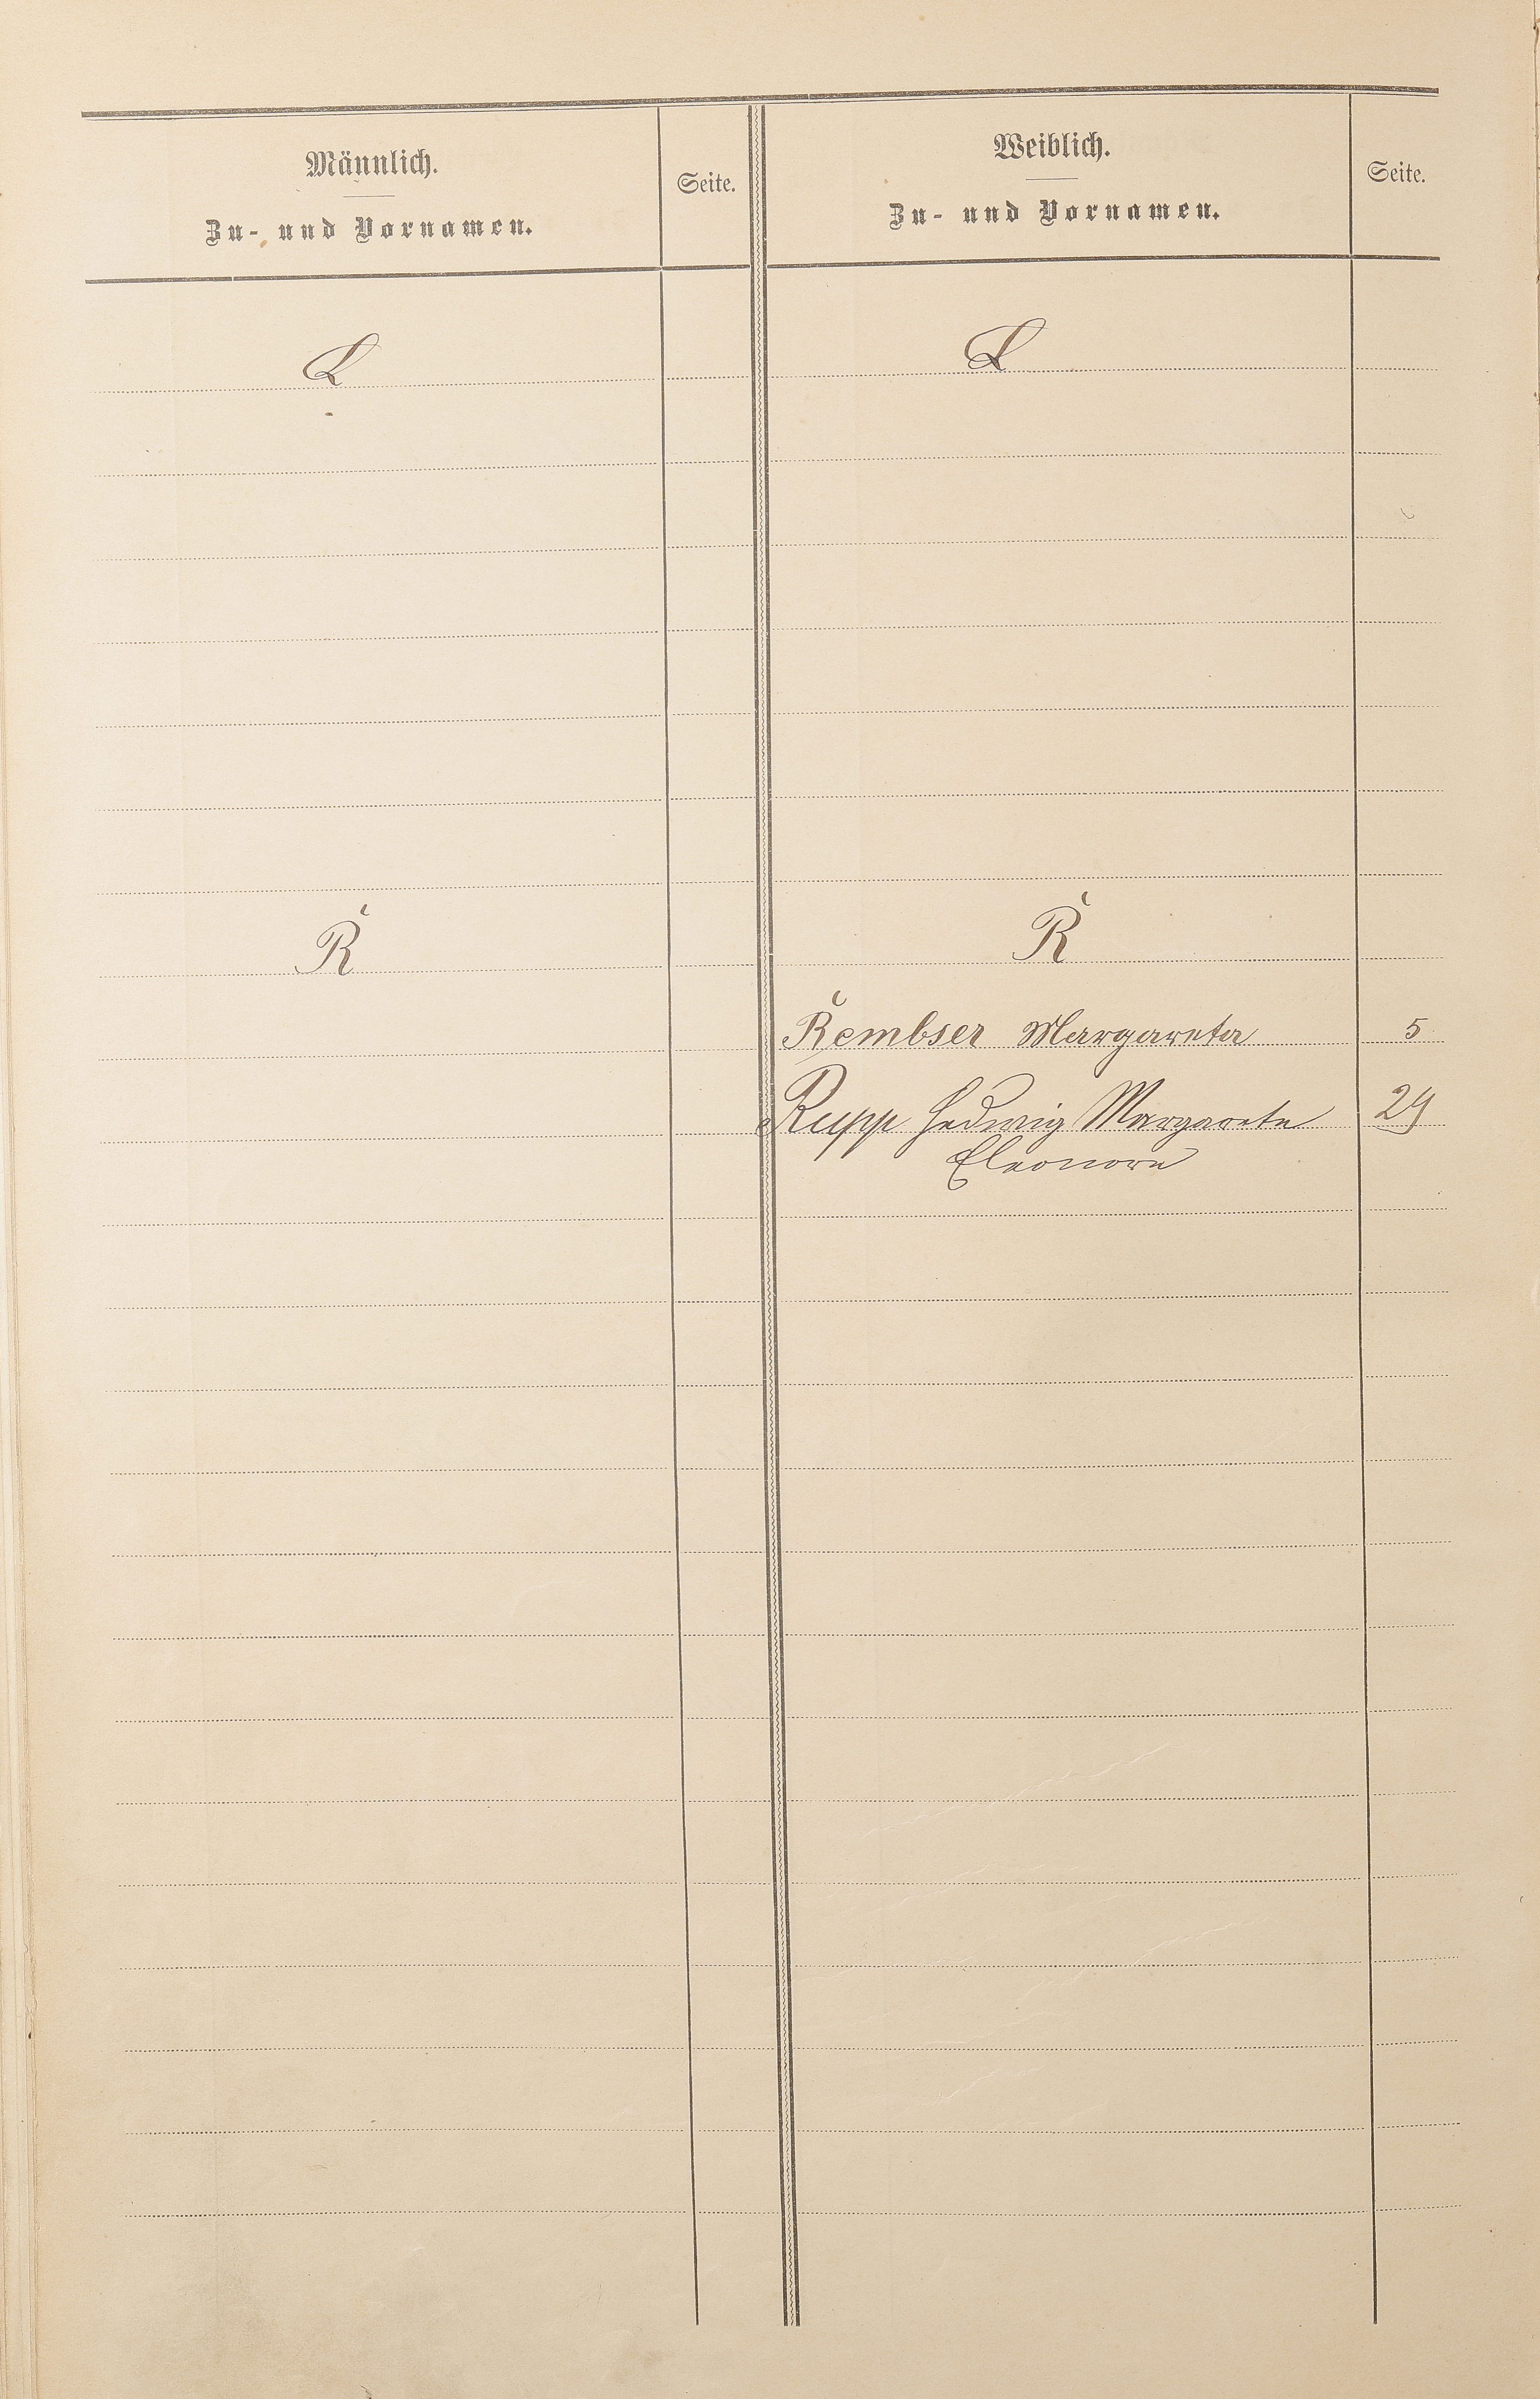 Männlich.
Zu- und Vornamen.
Seite.
Weiblich.
Zu- und Vornamen.
Seite.
R
R
Rembser Margareta 5
Rupp Hedwig Margarete 29
Eleonore